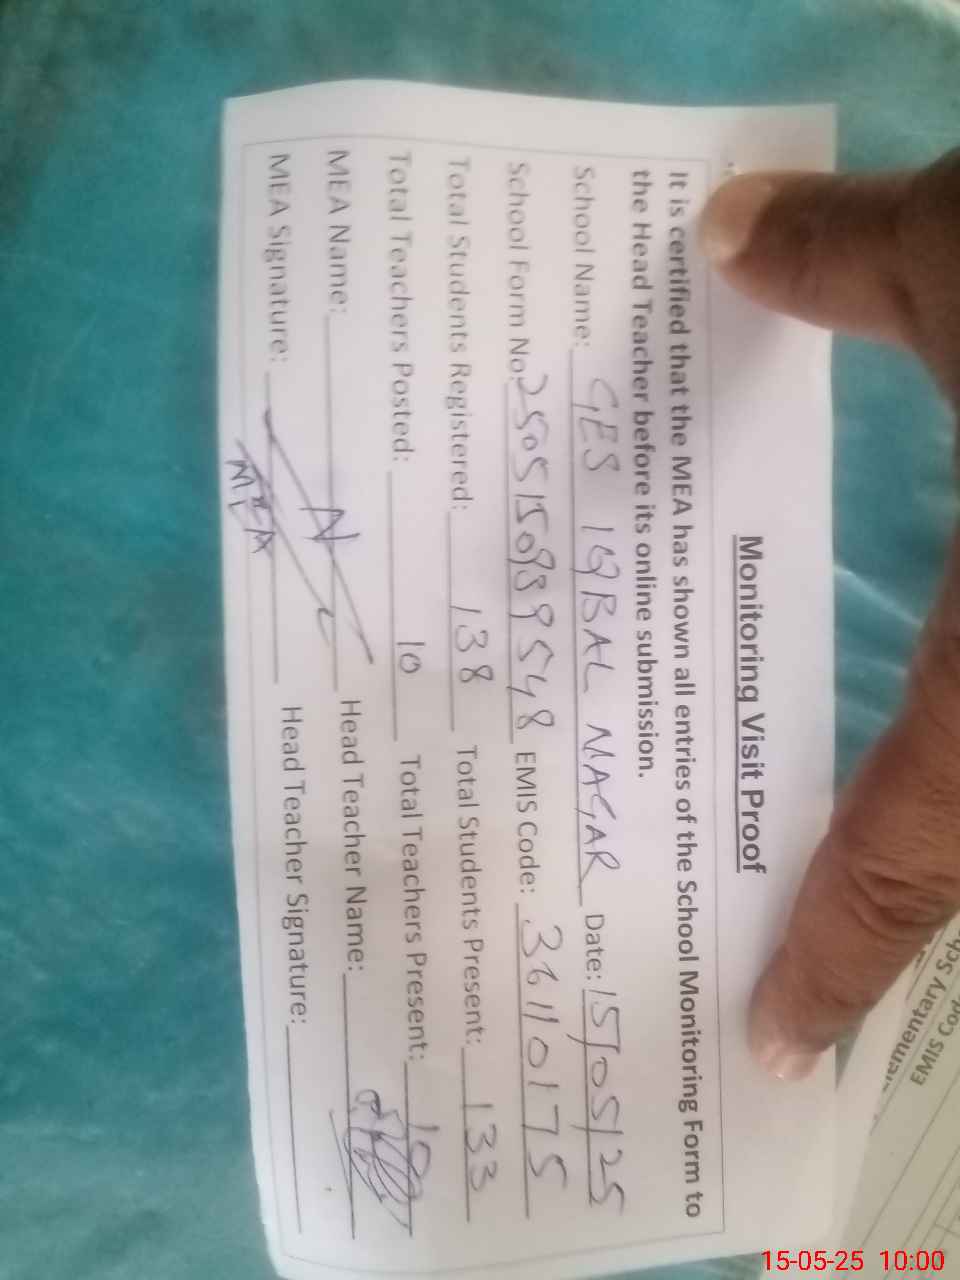 Monitoring Visit Proof
It is certified that the MEA has shown all entries of the School Monitoring Form to
the Head Teacher before its online submission.
School Name: GES IQBAL NAGAR Date: 15/05/25
School Form No: 2505150939548 EMIS Code: 36110175
Total Students Registered: 138 Total Students Present: 133
Total Teachers Posted: 10 Total Teachers Present: 10
MEA Name: Head Teacher Name:
MEA Signature: Head Teacher Signature:
MEA
EMIS Code
15-05-25 10:00